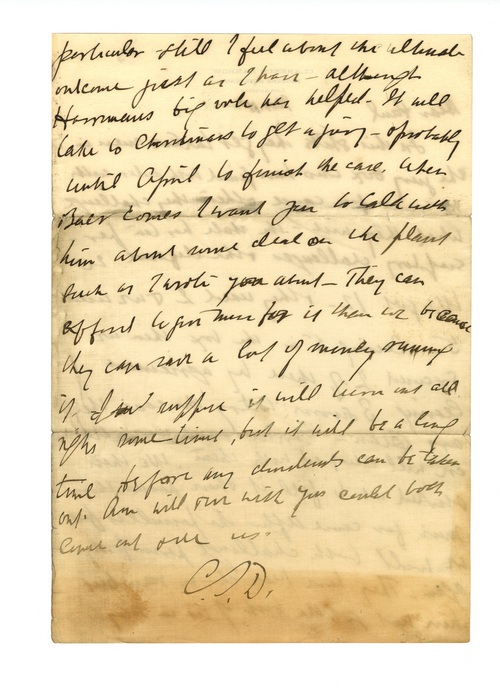 particular still I feel about the ultimate
outcome just as I have - although
Harrimans big vote has helped - It will
take to Christmas to get a jury - & probably
until April to finish the case. When
Baer comes I want you to talk with
him about some deal on the plant
such as I wrote you about - They can
afford to give more for it than we because
they can save a lot of money running
it I suppose it will turn out all
right some time, but it will be a long
time before any dividends can be taken
out. Am will our wish you could both
come out over us.
C.S.D.